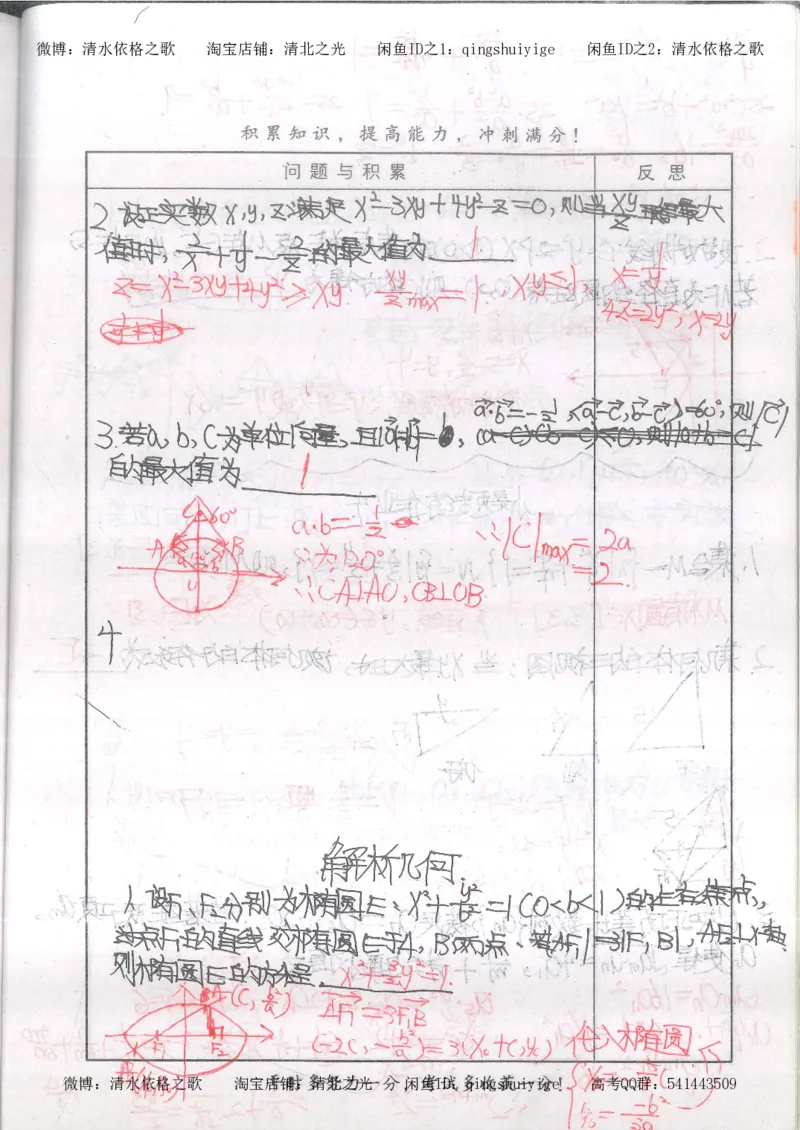 微博：清水依格之歌 淘宝店铺：清北之光 闲鱼ID之1：qingshuiyige 闲鱼ID之2：清水依格之歌
积累知识，提高能力，冲刺满分！
问题与积累 反思
2. 设正实数x,y,z满足x²-3xy+4y²-z=0，则当xy/z取得最大
值时，2/x+1/y-2/z的最大值为 1
z=x²-3xy+4y²≥xy. xy/z max=1
3.若a,b,c为单位向量，
a·b=-1/2,<a-c,b-c>=60°,则|c|
的最大值为 1
C 60°
A B
a·b=-1/2
∴为120°
∴CA⊥AO,CB⊥OB
∴|C|max=2a
=2
4
解析几何
1. 设F₁,F₂分别为椭圆E：x²+y²/b²=1(0<b<1)的左右焦点，
过点F₁的直线交椭圆E于A,B两点、若|AF₁|=3|F₁B|,AF₂⊥x轴
则椭圆E的方程 x²+3/2y²=1.
A(C, b²/a)
AF₁=3F₁B
(-2C,-b²/a)=3(x₀+C,y₀) 代入椭圆
微博：清水依格之歌 淘宝店铺：清北之光 闲鱼ID：qingshuiyige 高考QQ群：541443509